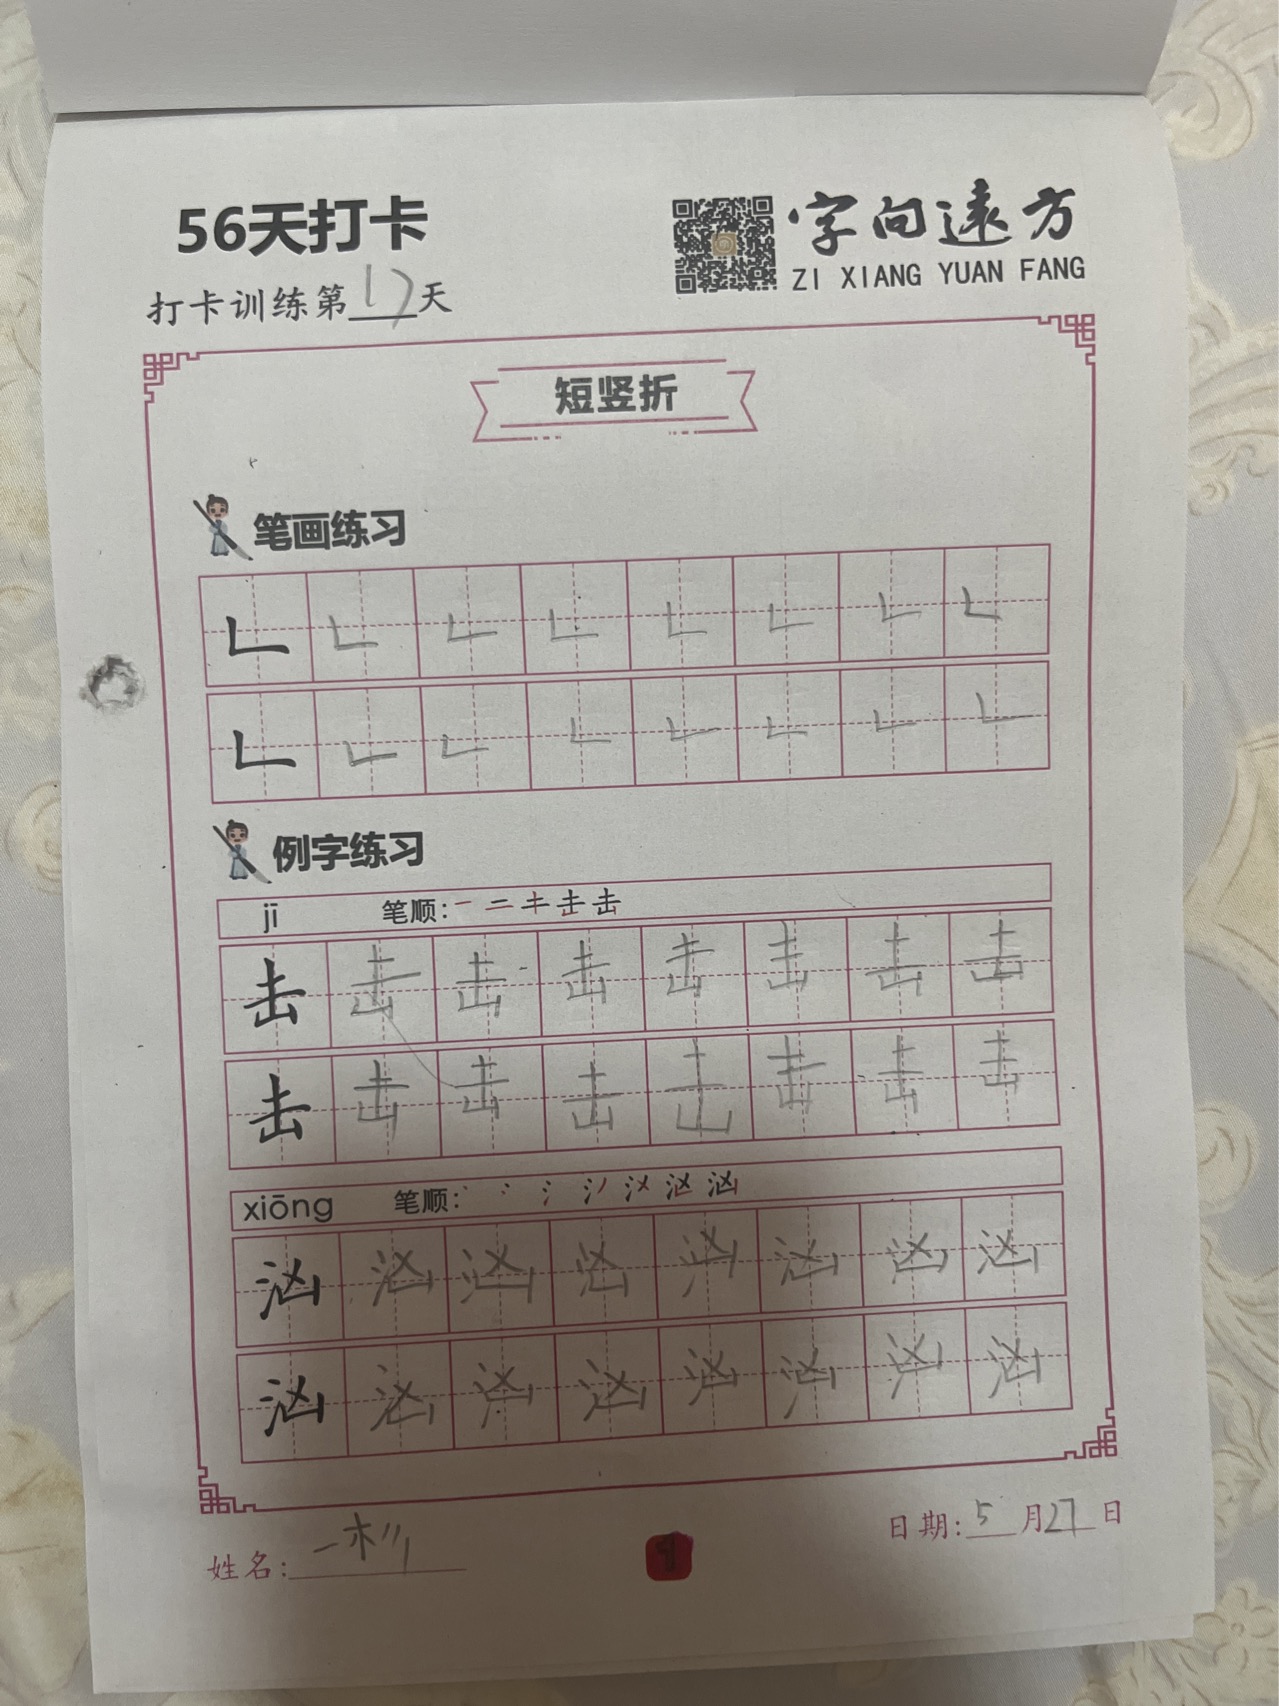 56天打卡
字向遠方
ZI XIANG YUAN FANG
打卡训练第17天
短竖折
笔画练习
𠃊 𠃊 𠃊 𠃊 𠃊 𠃊 𠃊 𠃊
𠃊 𠃊 𠃊 𠃊 𠃊 𠃊 𠃊 𠃊
例字练习
jī 笔顺: 一 二 キ 击 击
击 击 击 击 击 击 击 击
击 击 击 击 击 击 击 击
xiōng 笔顺: 汹
汹 汹 汹 汹 汹 汹 汹 汹
汹 汹 汹 汹 汹 汹 汹 汹
姓名:
日期: 5 月 27 日